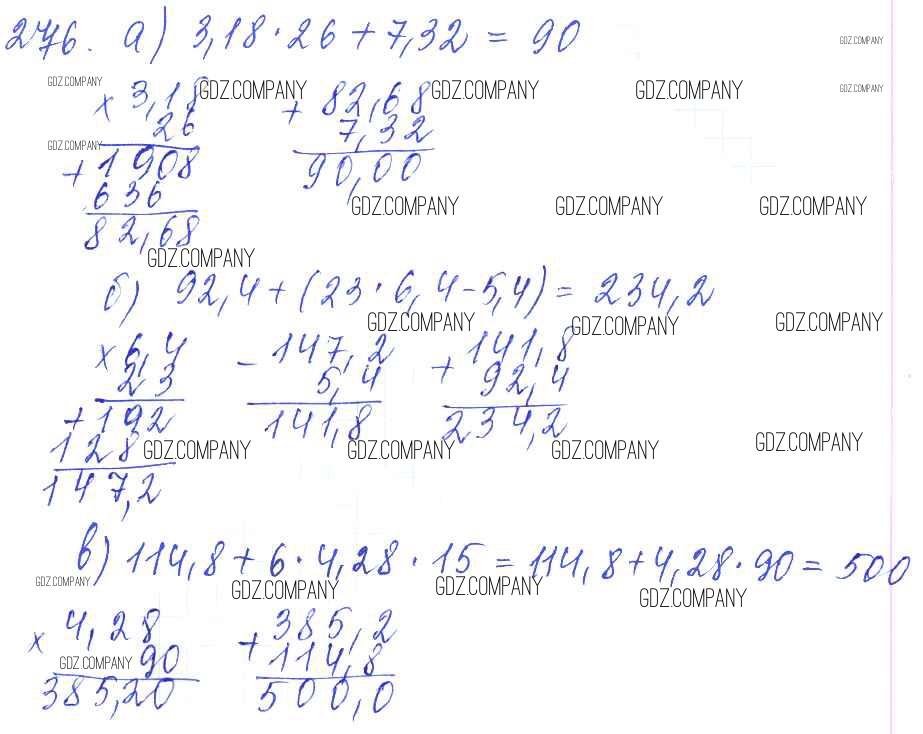 276. а) 3,18 · 26 + 7,32 = 90
GDZ.COMPANY
GDZ.COMPANY GDZ.COMPANY GDZ.COMPANY GDZ.COMPANY GDZ.COMPANY
× 3,18 + 82,68
26 7,32
GDZ.COMPANY
+ 1908 90,00
636
GDZ.COMPANY GDZ.COMPANY GDZ.COMPANY
82,68
GDZ.COMPANY
б) 92,4 + (23 · 6,4 - 5,4) = 234,2
GDZ.COMPANY GDZ.COMPANY GDZ.COMPANY
× 6,4 - 147,2 + 141,8
23 5,4 92,4
+ 192 141,8 234,2
128 GDZ.COMPANY GDZ.COMPANY GDZ.COMPANY GDZ.COMPANY
147,2
в) 114,8 + 6 · 4,28 · 15 = 114,8 + 4,28 · 90 = 500
GDZ.COMPANY GDZ.COMPANY GDZ.COMPANY GDZ.COMPANY
× 4,28 + 385,2
GDZ.COMPANY 90 114,8
385,20 500,0